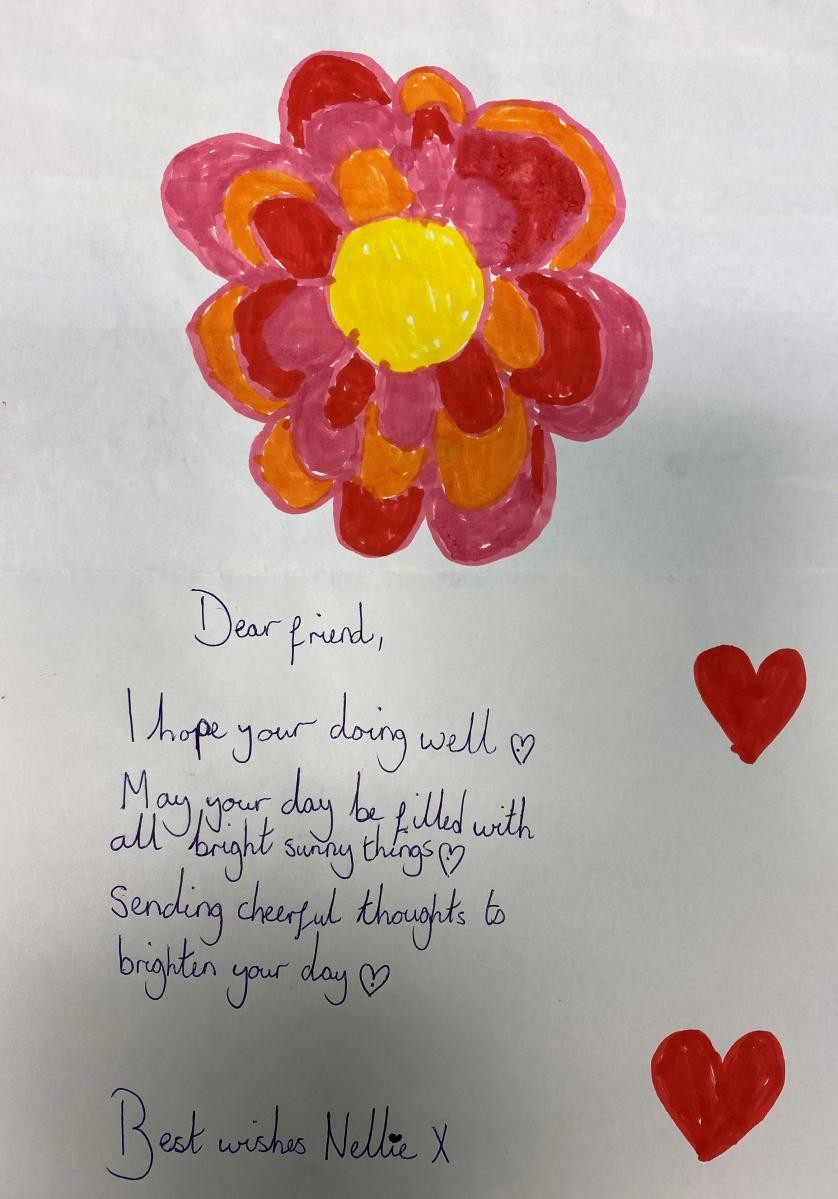 Dear friend,
I hope your doing well ♡
May your day be filled with
all bright sunny things ♡
Sending cheerful thoughts to
brighten your day ♡
Best wishes Nellie X